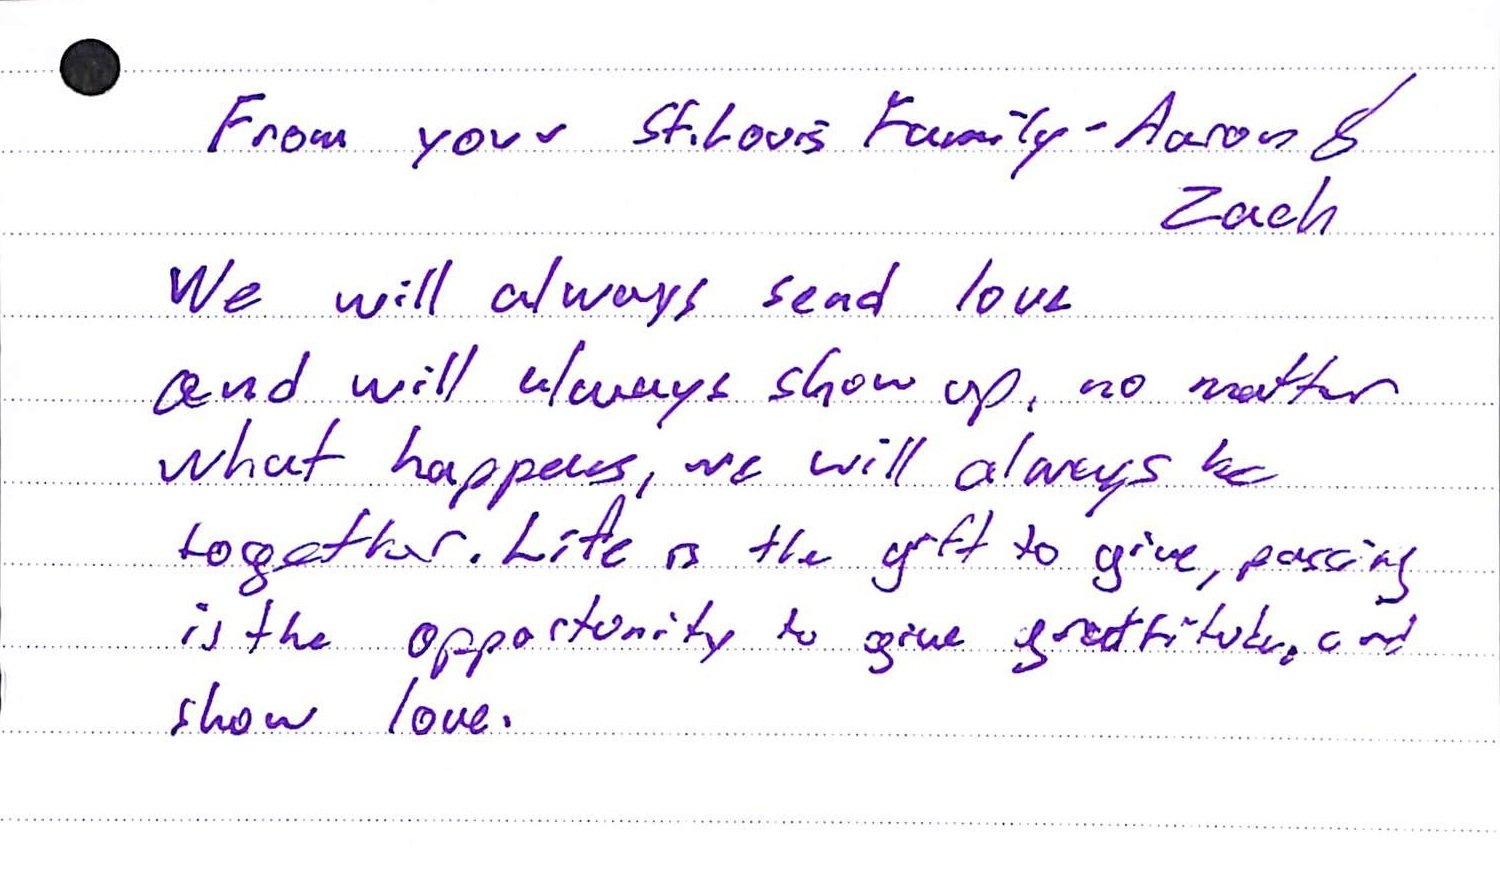 From your St. Louis Family - Aaron &
Zach
We will always send love
and will always show up, no matter
what happens, we will always be
together. Life is the gift to give, passing
is the opportunity to give gratitude, and
show love.